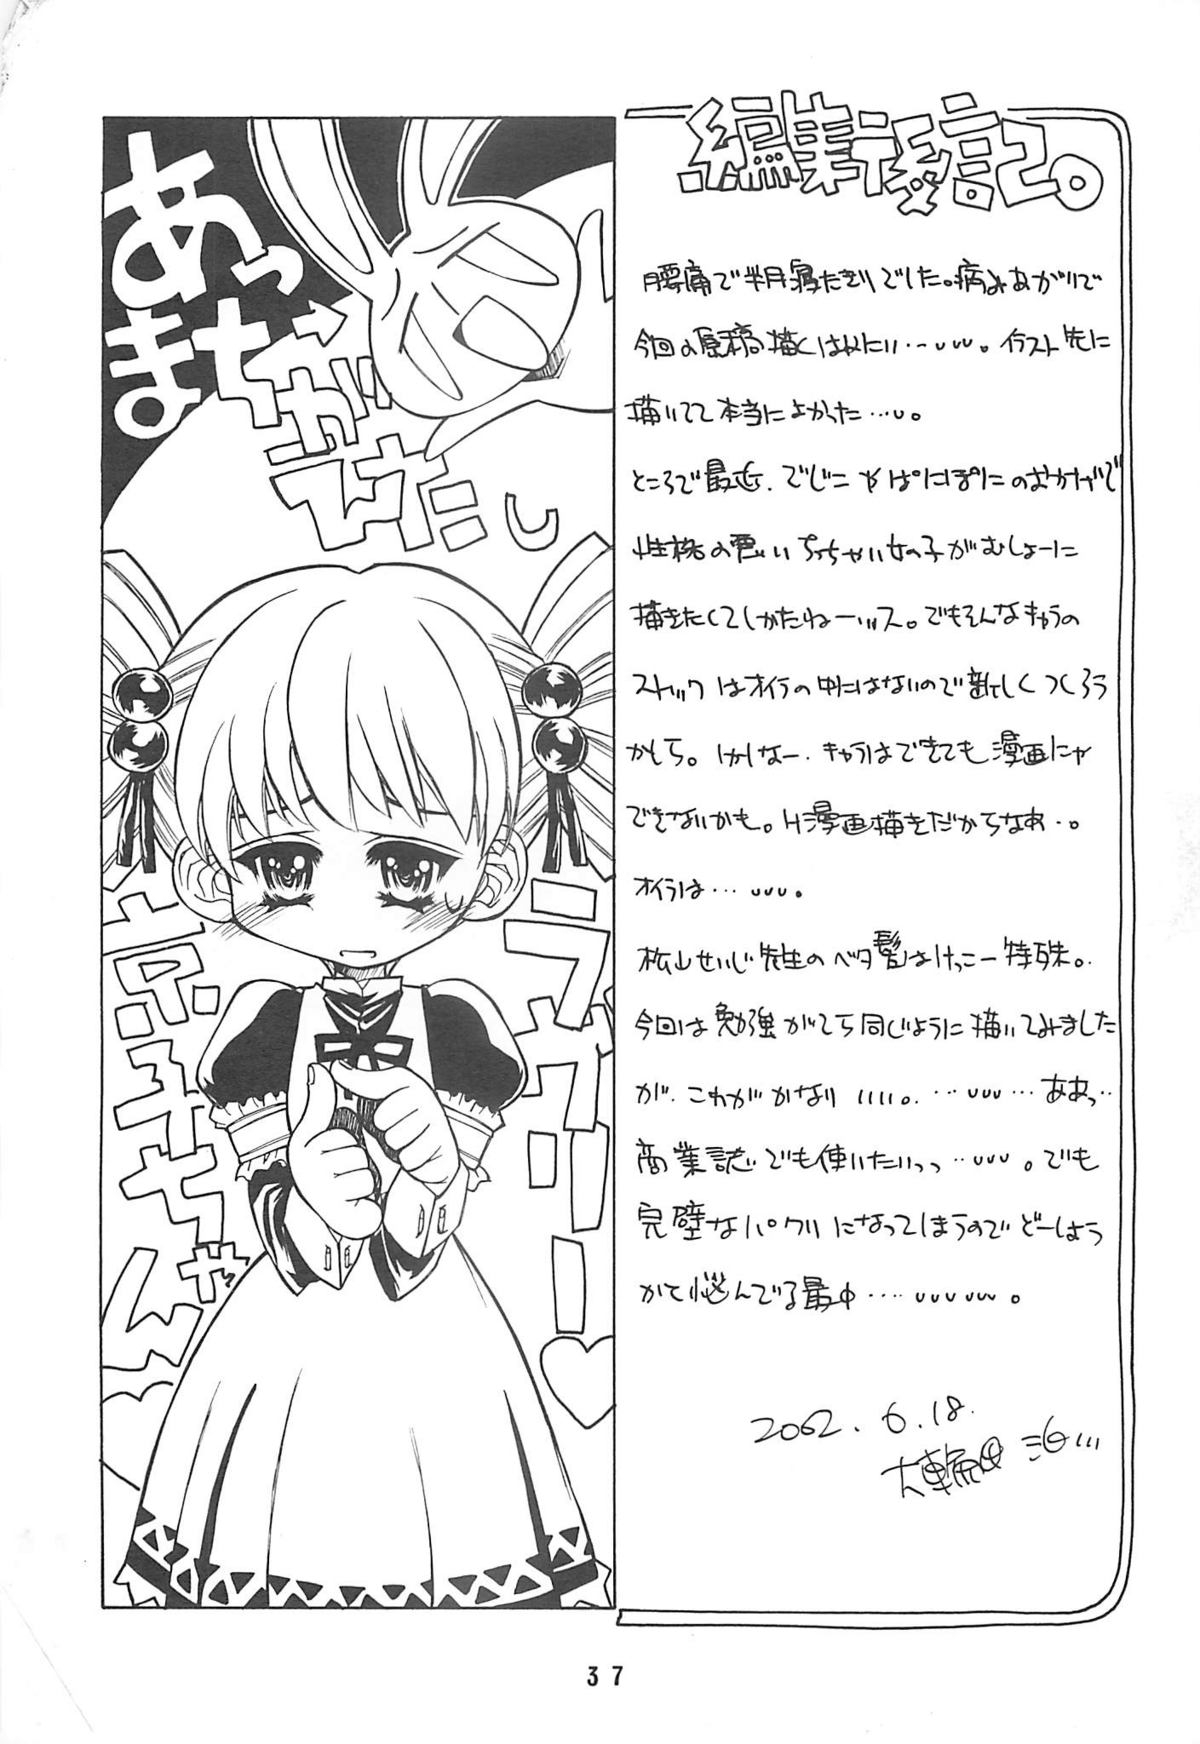 編集後記。
腰痛で半月寝たきりでした。病みあがりで
今回の原稿描くはめに…。イラスト先に
描いてて本当によかった…。
ところで最近、でじこやぱにぽにのおかげで
性格の悪いちっちゃい女の子がむしょーに
描きたくてしかたねーッス。でもそんなキャラの
ストックはオイラの中にはないので新しくつくろう
かしら。しかしなー、キャラはできても漫画にゃ
できないかも。H漫画描きだからなぁ…。
オイラは……。
松山せいじ先生のベタ髪はけっこー特殊。
今回は勉強がてら同じように描いてみました
が、これがかなりいい。……ああっ…
商業誌でも使いたいっっ……。でも
完璧なパクリになってしまうのでどーしよう
かと悩んでる最中……。
2002.6.18.
あっ
まちがえたし
ラブリー
京子ちゃん
37